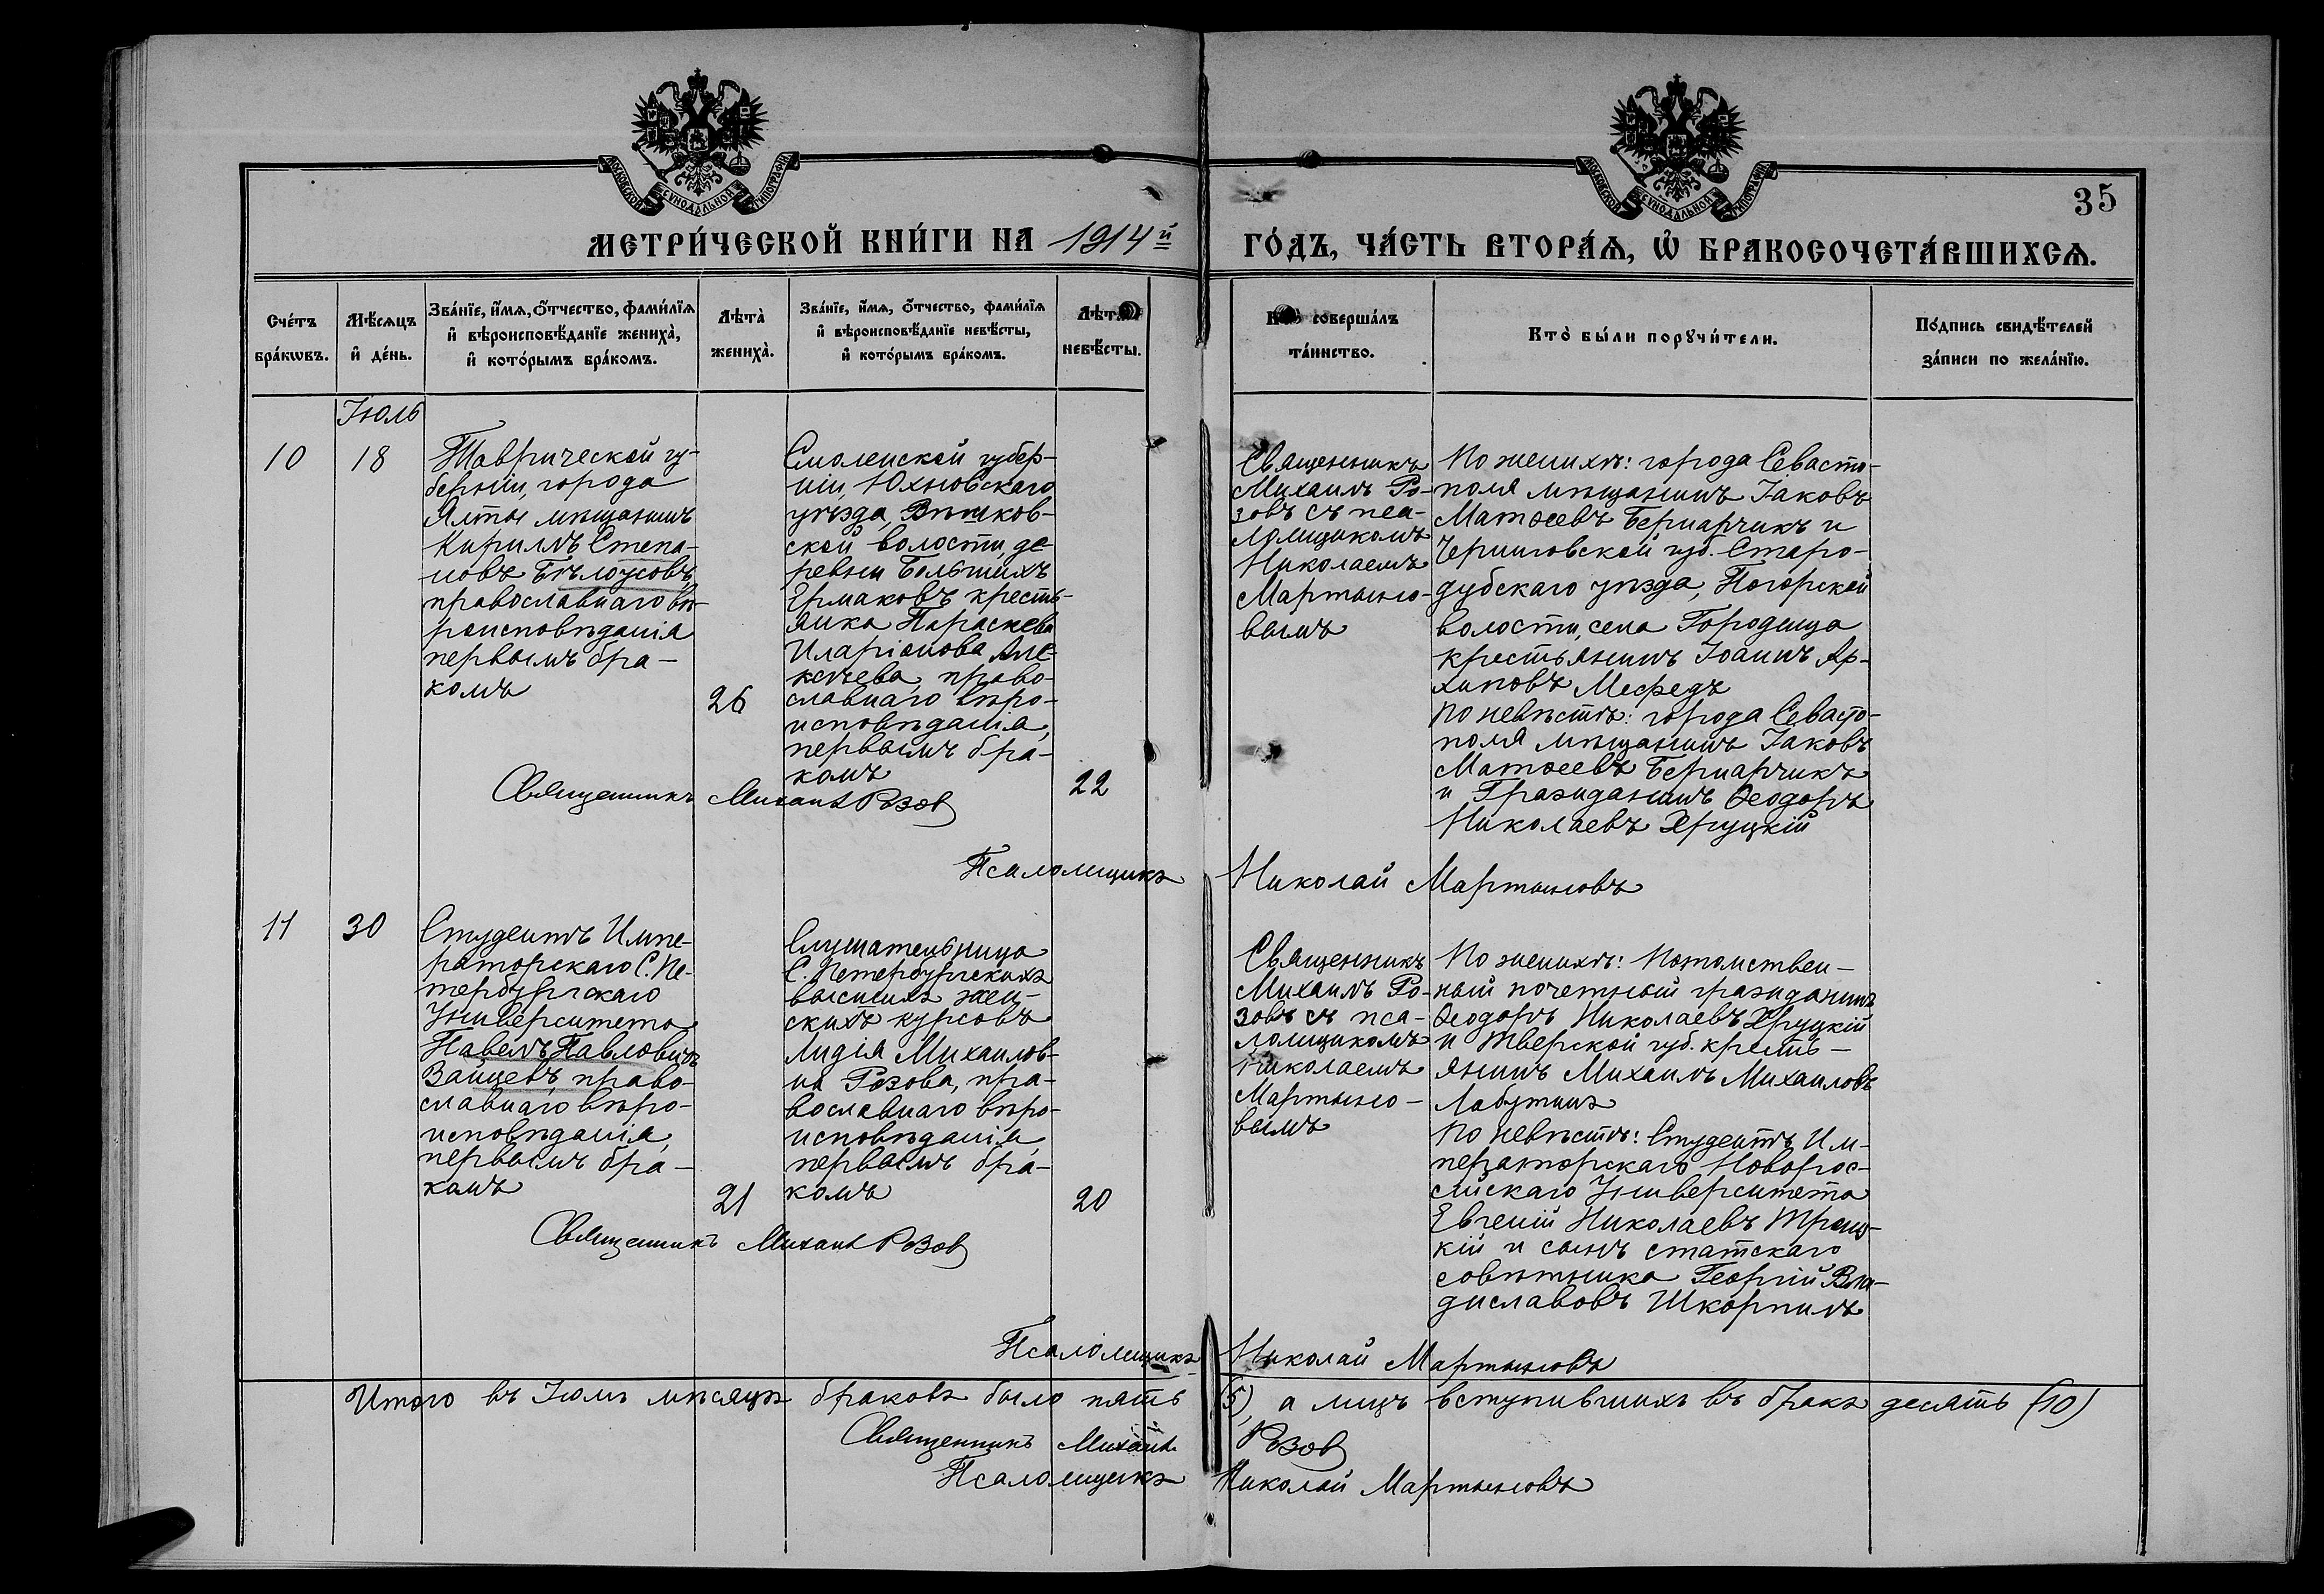 МОСКОВСКОЙ СѴНОДАЛЬНОЙ ТИПОГРАФІИ
МОСКОВСКОЙ СѴНОДАЛЬНОЙ ТИПОГРАФІИ
35
МЕТРИ́ЧЕСКОЙ КНИ́ГИ НА 1914й ГО́ДЪ, ЧА́СТЬ ВТОРА́Ѧ, Ѡ҆ БРАКОСОЧЕТА́ВШИХСѦ.
Сче́тъ
бра́кѡвъ.
Мѣ́сѧцъ
и҆ де́нь.
Зва́нїе, и҆́мѧ, ѻ҆́тчество, фами́лїѧ
и҆ вѣроисповѣ́данїе жениха̀,
и҆ кото́рымъ бра́комъ.
Лѣта̀
жениха̀.
Зва́нїе, и҆́мѧ, ѻ҆́тчество, фами́лїѧ
и҆ вѣроисповѣ́данїе невѣ́сты,
и҆ кото́рымъ бра́комъ.
Лѣта̀
невѣ́сты.
Кто̀ соверша́лъ
та́инство.
Кто̀ бы́ли порꙋчи́тели.
По́дпись свидѣ́телей
за́писи по жела́нїю.
Іюль
10
18
Таврической гу-
берніи, города
Ялты мѣщанинъ
Кириллъ Степа-
новъ Бѣлоусовъ,
православнаго вѣ-
роисповѣданія
первымъ бра-
комъ
26
Смоленской губер-
ніи, Юхновскаго
уѣзда, Вѣшков-
ской волости, де-
ревни Большихъ
Ермаковъ кресть-
янка Параскева
Иларіонова Але-
ксѣева, право-
славнаго вѣро-
исповѣданія,
первымъ бра-
комъ
22
Священникъ
Михаилъ Ро-
зовъ съ пса-
ломщикомъ
Николаемъ
Мартыно-
вымъ
По женихѣ: города Севасто-
поля мѣщанинъ Іаковъ
Матѳеевъ Бернарчикъ и
Черниговской губ. Старо-
дубскаго уѣзда, Погорской
волости, села Городища
крестьянинъ Іоаннъ Ар-
хиповъ Мефедъ
По невѣстѣ: города Севасто-
поля мѣщанинъ Іаковъ
Матѳеевъ Бернарчикъ
и Гражданинъ Ѳеодоръ
Николаевъ Хруцкій
Священникъ Михаилъ Розов
Псаломщикъ Николай Мартыновъ
11
30
Студентъ Импе-
раторскаго С. Пе-
тербургскаго
Университета
Павелъ Павловичъ
Зайцевъ, право-
славнаго вѣро-
исповѣданія,
первымъ бра-
комъ
21
Слушательница
С. Петербургскихъ
высшихъ жен-
скихъ курсовъ
Лидія Михаилов-
на Розова, пра-
вославнаго вѣро-
исповѣданія,
первымъ бра-
комъ
20
Священникъ
Михаилъ Ро-
зовъ съ пса-
ломщикомъ
Николаемъ
Мартыно-
вымъ
По женихѣ: Потомствен-
ный почетный гражданинъ
Ѳеодоръ Николаевъ Хруцкій
и Тверской губ. кресть-
янинъ Михаилъ Михаиловъ
Лабутинъ
По невѣстѣ: Студентъ Им-
ператорскаго Новорос-
сійскаго Университета
Евгеній Николаевъ Троиц-
кій и сынъ статскаго
совѣтника Георгій Вла-
диславовъ Шкорпилъ
Священникъ Михаилъ Розов
Псаломщикъ Николай Мартыновъ
Итого въ Іюлѣ мѣсяцѣ браковъ было пять (5), а лицъ вступившихъ въ бракъ десять (10)
Священникъ Михаилъ Розов
Псаломщикъ Николай Мартыновъ